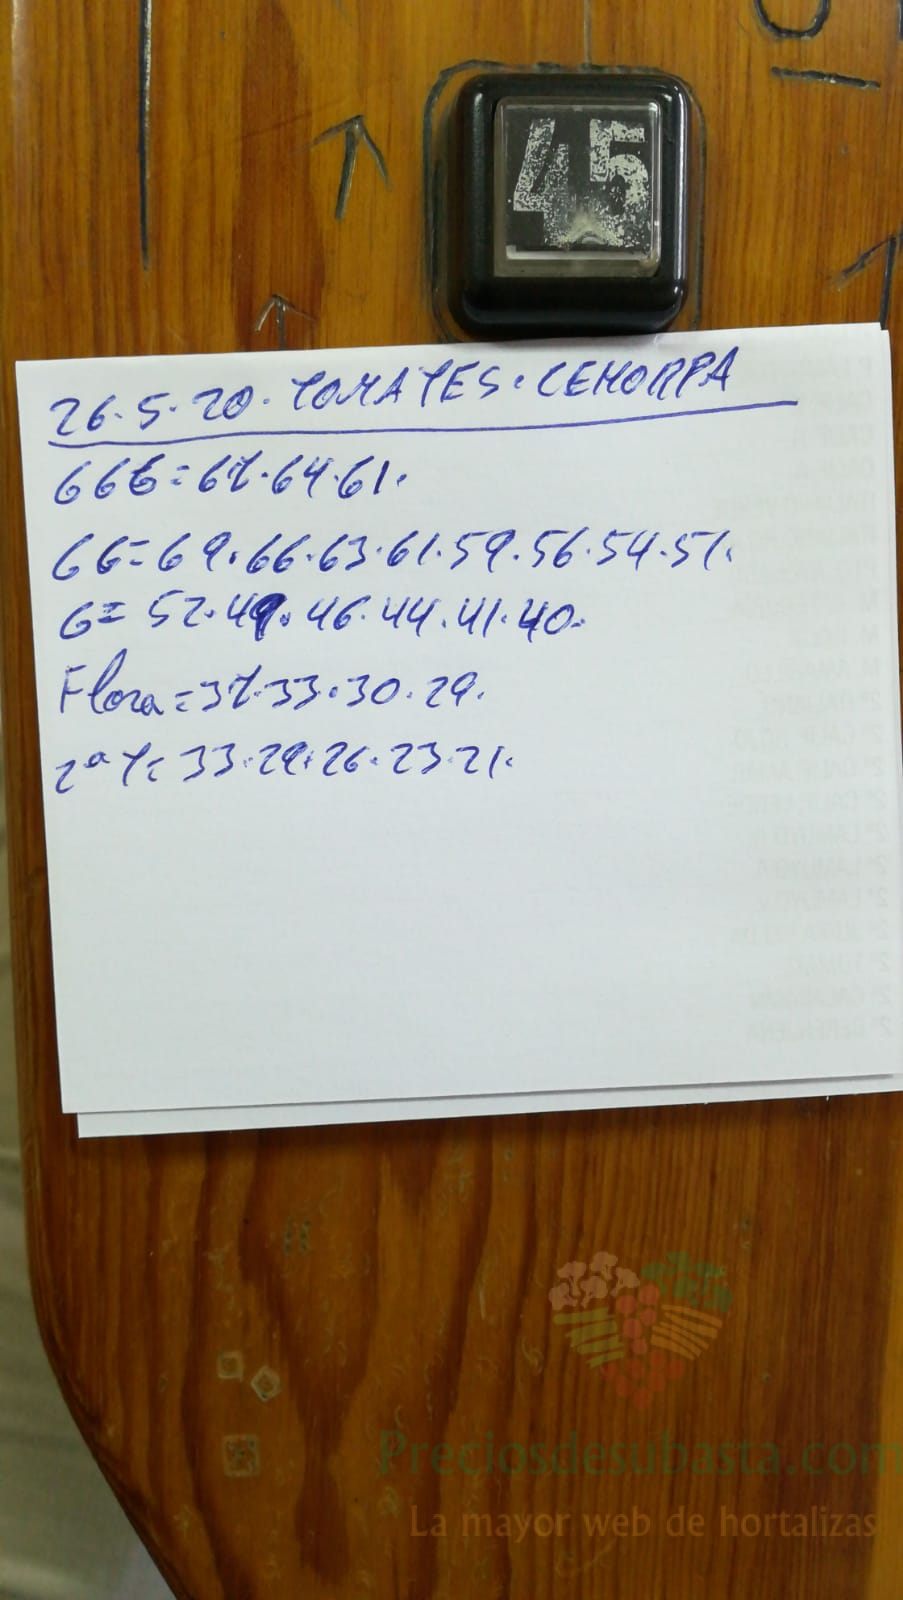 45
26.5.20. TOMATES. CEHORPA
GGG=67.64.61.
GG=69.66.63.61.59.56.54.51.
G=52.49.46.44.41.40.
Flora=37.33.30.29.
2ª T=33.29.26.23.21.
Preciosdesubasta.com
La mayor web de hortalizas